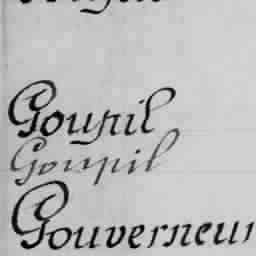 Goupil
Goupil
Gouverneur